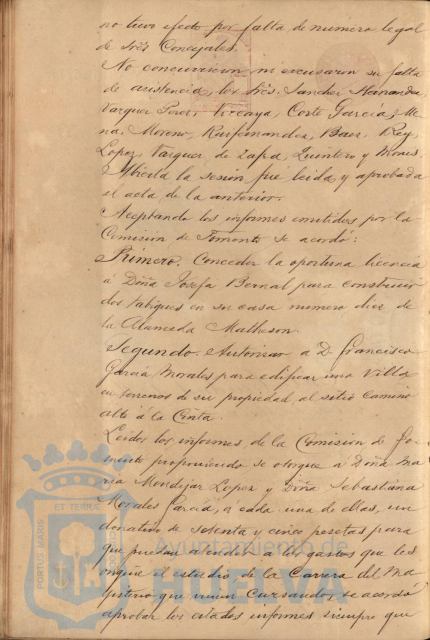 no tuvo efecto por falta de numero legal
de Srès Concejales.
No concurrieron ni escusaron su falta
de asistencia, los Srès. Sanchez Hernandez
Vazquez Perez, Vizcaya, Corte Garcia, Me
na, Moreno, Ruifernandez, Baez, Rey,
Lopez, Vazquez de Zafra, Quintero y
Abierta la sesión, fué leida y aprobada
el acta de la anterior.
Aceptando los informes emitidos por la
Comisión de Fomento se acordó:
Primero. Conceder la oportuna licencia
á Doña Josefa Bernal para construir
dos tabiques en su casa numero diez de
la Alameda Matheson.
Segundo. Autorizar a D. Francisco
Garcia Morales para edificar una Villa
en terrenos de su propiedad al sitio camino
alto á la Cinta.
Leidos los informes de la Comisión de Fo-
mento proponiendo se otorgue á Doña Ma
ria Mondejar Lopez y Doña Sebastiana
Morales Garcia, a cada una de ellas, un
donativo de setenta y cinco pesetas para
que puedan atender a los gastos que les
origine el estudio de la Carrera del Ma-
gisterio que vienen cursando, se acordó
aprobar los citados informes siempre que
PORTUS MARIS ET TERRAE
Ayuntamiento de
HUELVA